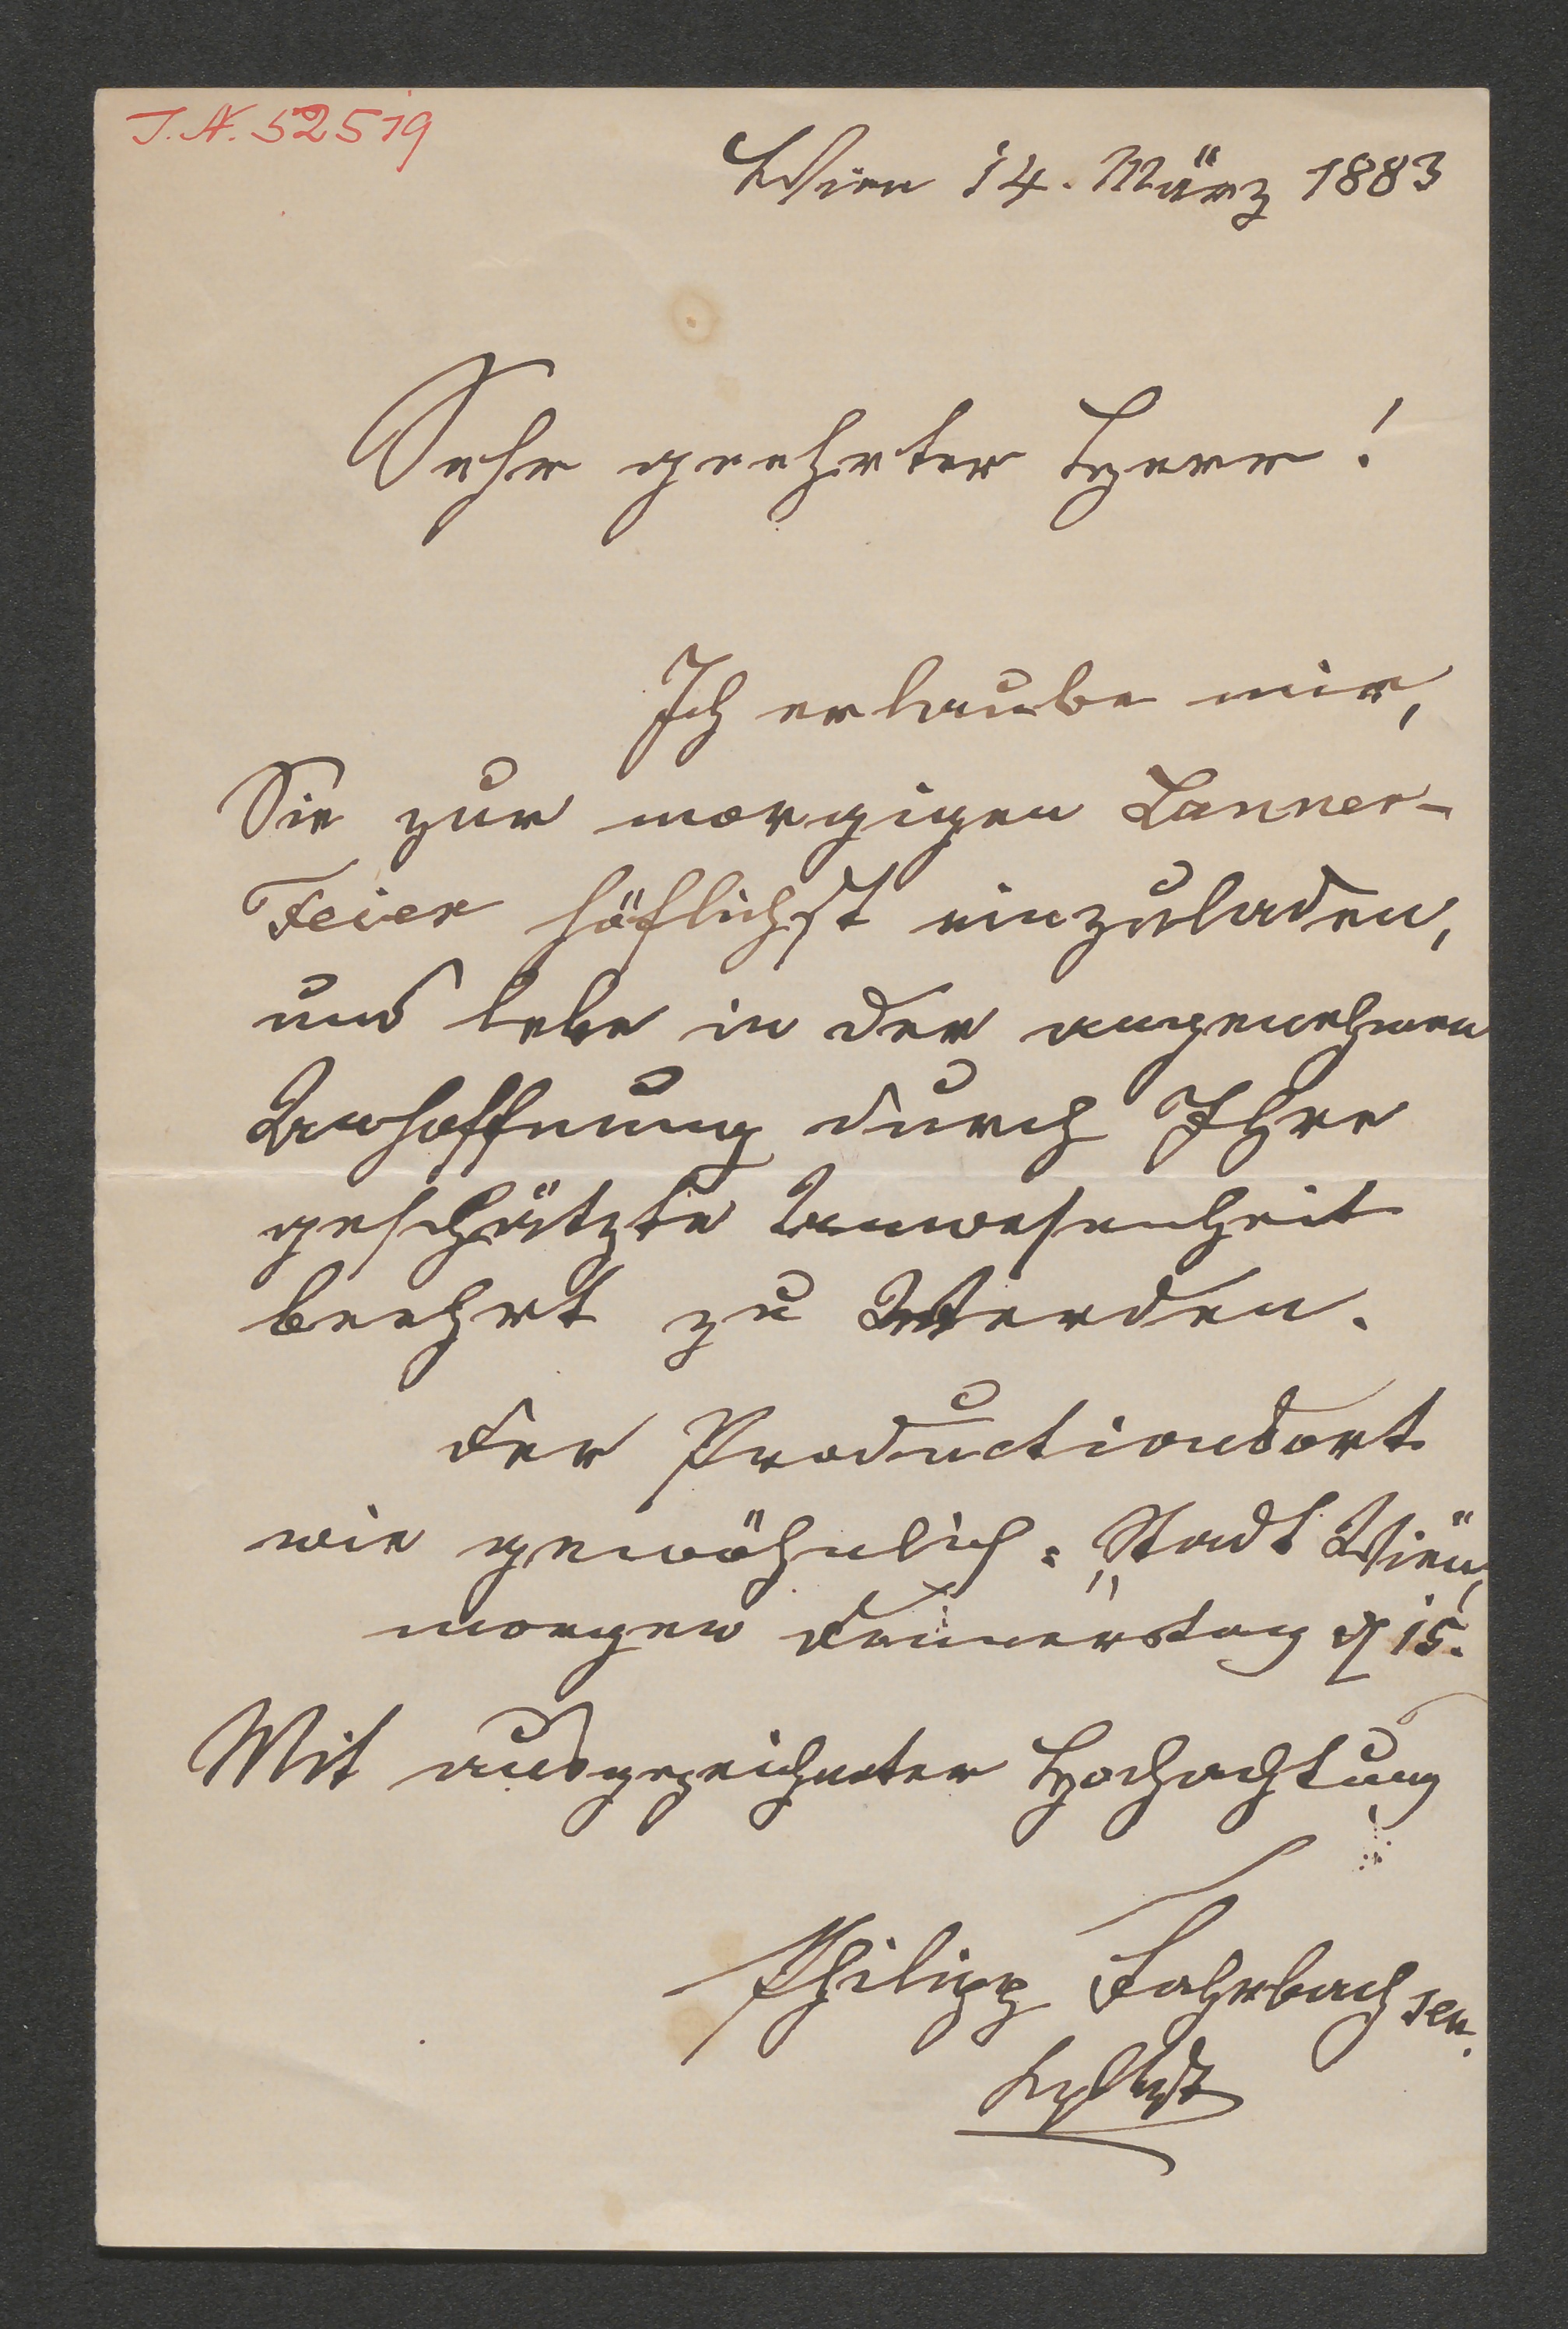 J.N. 52519
Wien 14. März 1883
Sehr geehrter Herr!
Ich erlaube mir,
Sie zur morgigen Lanner-
Feier höflichst einzuladen,
und lebe in der angenehmen
Anhoffnung durch Ihre
geschätzte Anwesenheit
beehrt zu Werden.
Der Productionsort
wie gewöhnlich: „Stadt Wien“
morgen Donnerstag d 15.
Mit ausgezeichneter Hochachtung
Philipp Fahrbach sen.